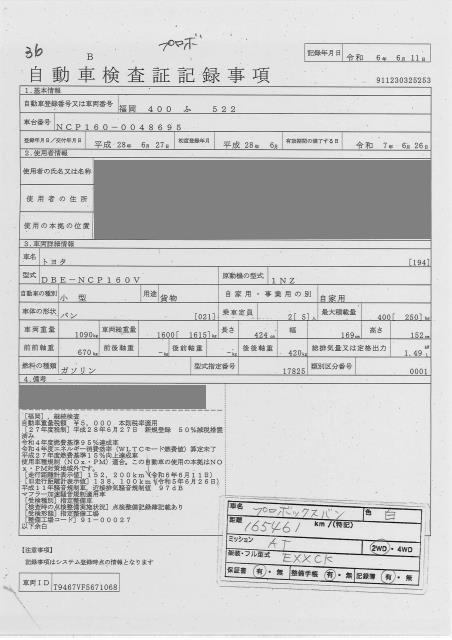 36
プロボ
B
記録年月日 令和 6年 6月 11日
自動車検査証記録事項
911230325253
1.基本情報
自動車登録番号又は車両番号 福岡 400 ふ 522
車台番号 NCP160-0048695
登録年月日/交付年月日 平成 28年 6月 27日 初度登録年月 平成 28年 6月 有効期間の満了する日 令和 7年 6月 26日
2.使用者情報
使用者の氏名又は名称
使用者の住所
使用の本拠の位置
3.車両詳細情報
車名 トヨタ [194]
型式 DBE-NCP160V 原動機の型式 1NZ
自動車の種別 小型 用途 貨物 自家用・事業用の別 自家用
車体の形状 バン [021] 乗車定員 2[ 5]人 最大積載量 400[ 250]kg
車両重量 1090kg 車両総重量 1600[ 1615]kg 長さ 424cm 幅 169cm 高さ 152cm
前前軸重 670kg 前後軸重 -kg 後前軸重 -kg 後後軸重 420kg 総排気量又は定格出力 1.49L
燃料の種類 ガソリン 型式指定番号 17825 類別区分番号 0001
4.備考
[福岡],継続検査
自動車重量税額 ¥5,000 本則税率適用
[27年度税制]平成28年6月27日 新規登録 50%減税措置
済み
令和4年度燃費基準95%達成車
令和4年度エネルギー消費効率(WLTCモード燃費値)算定未了
平成27年度燃費基準15%向上達成車
使用車種規制(NOx・PM)適合,この自動車の使用の本拠はNO
x・PM対策地域外です。
[走行距離計表示値]152,200km(令和6年6月11日)
[旧走行距離計表示値]138,100km(令和5年6月26日)
平成11年騒音規制車,近接排気騒音規制値 97dB
マフラー加速騒音規制適用車
[受検種別]指定整備車
[検査時の点検整備実施状況]点検整備記録簿記載あり
[受検形態]指定整備工場
[整備工場コード]91-00027
以下余白
車名 プロボックスバン 色 白
距離 165461 km/(特記)
ミッション AT 2WD・4WD
架装・フル型式 EXXCK
保証書 有・無 整備手帳 有・無 記録簿 有・無
[注意事項]
記録事項はシステム登録時点の情報となります
車両ID T9467VF5671068